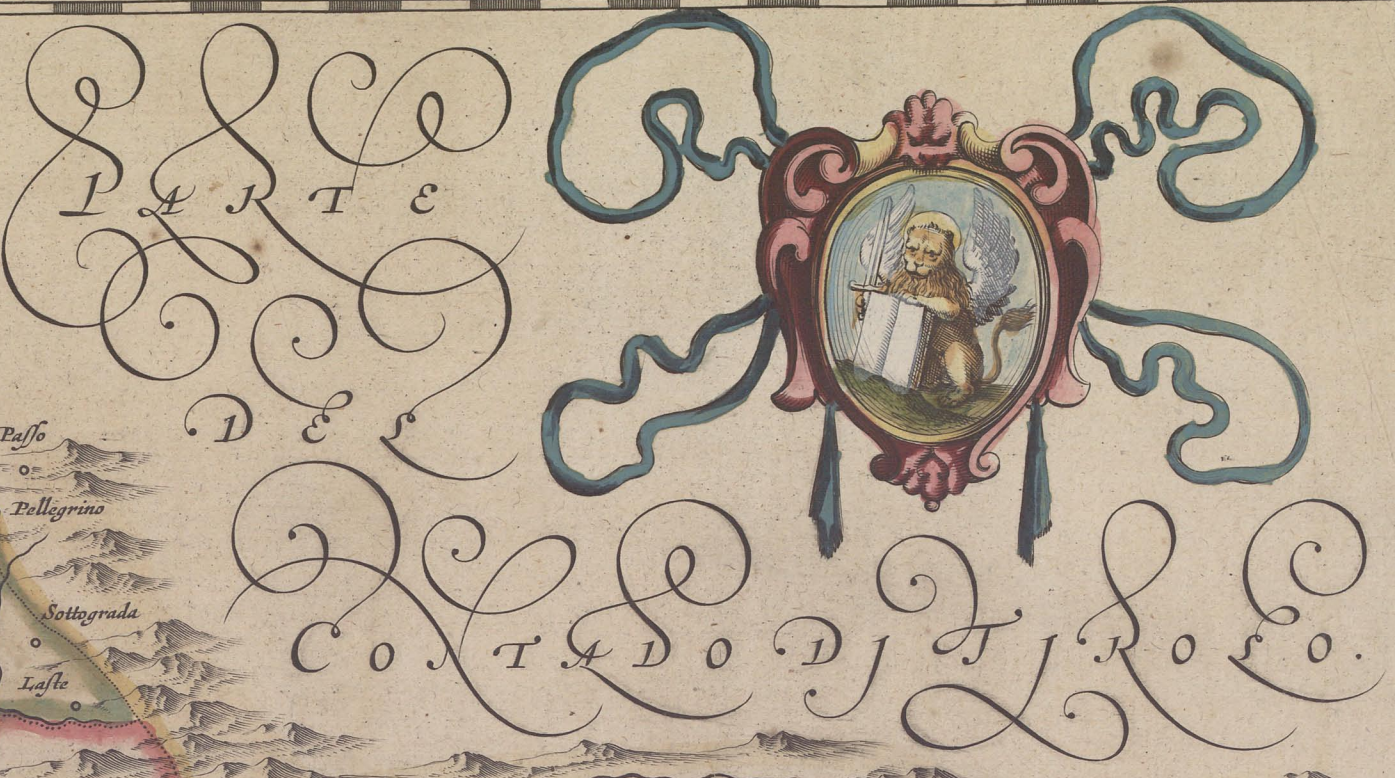 PARTE
DEL
CONTADO DJ TJROLO.
Paſſo
Pellegrino
Sottograda
Laſte